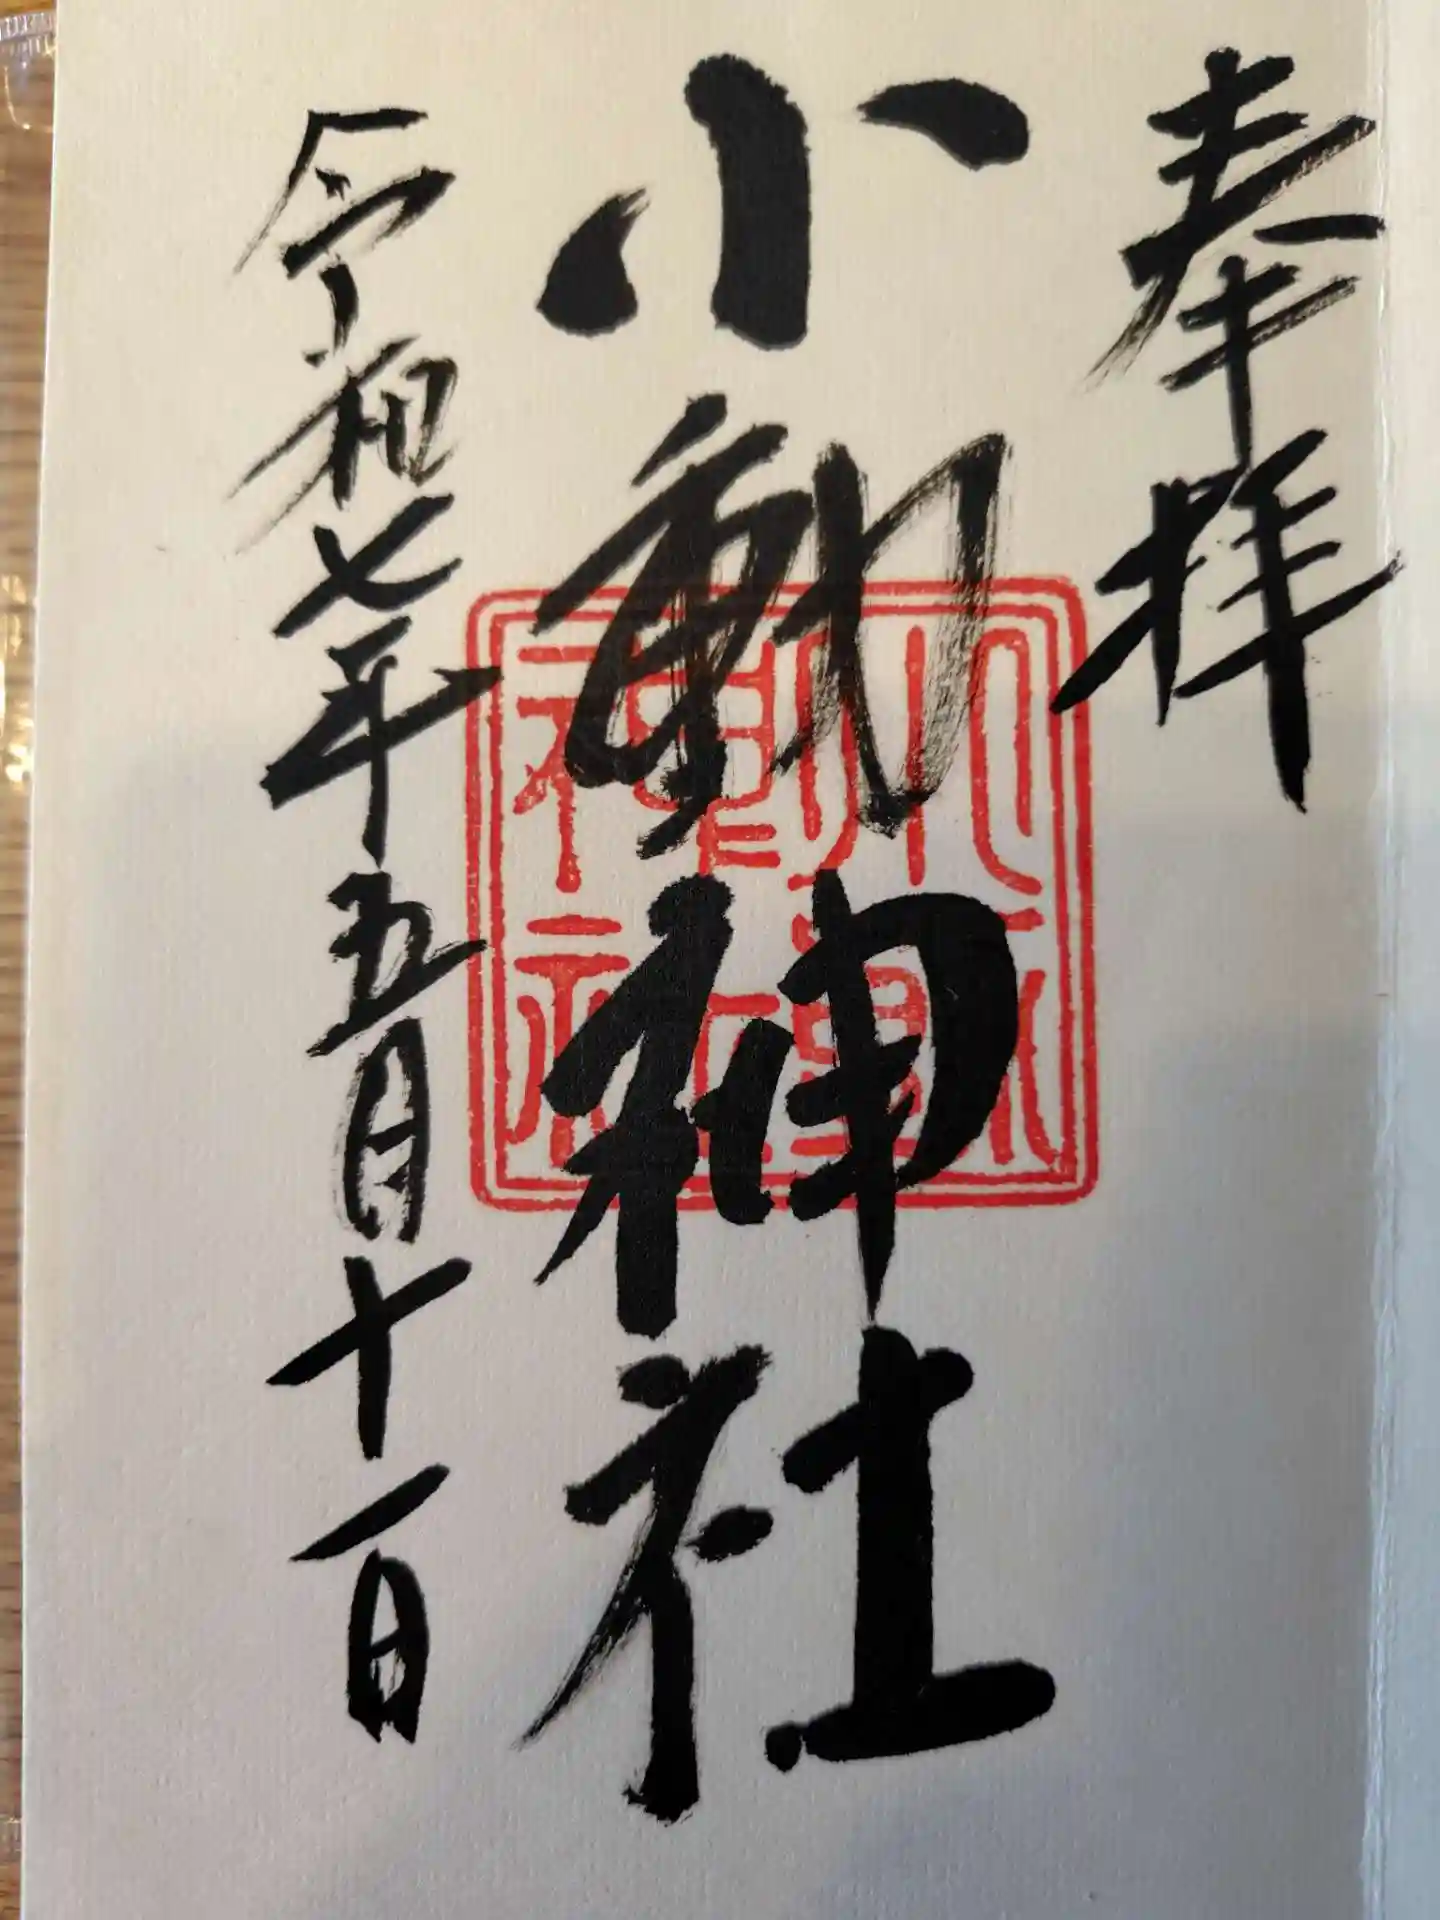 奉拝
小動神社
令和七年五月十一日
小動神社